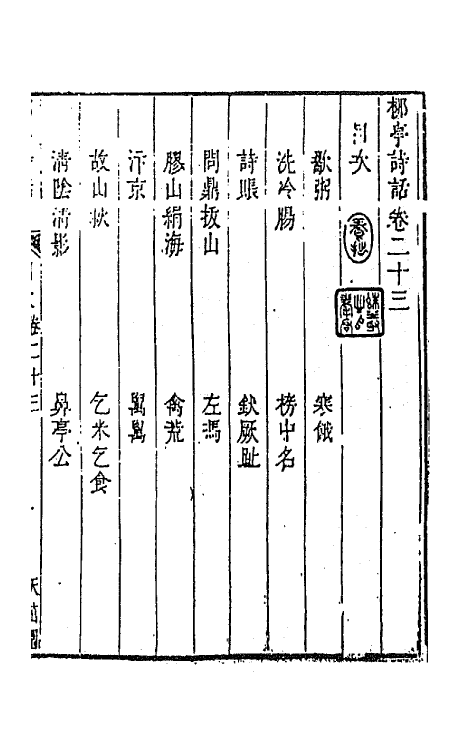 榔亭詩話卷二十三
目次
歠粥 寒餓
洗冷腸 榜中名
詩賬 欽厥趾
問鼎拔山 左馮
膠山絹海 禽荒
汴京
故山秋 乞米乞食
清陰清影 鼻亭公
卷二十三